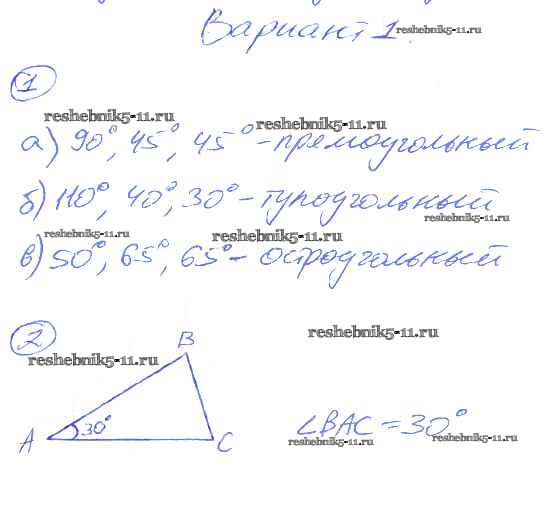 Вариант 1 reshebnik5-11.ru
1
reshebnik5-11.ru reshebnik5-11.ru
а) 90°, 45°, 45° - прямоугольный
б) 110°, 40°, 30° - тупоугольный
reshebnik5-11.ru
reshebnik5-11.ru reshebnik5-11.ru
в) 50°, 65°, 65° - остроугольный
2
reshebnik5-11.ru
B
reshebnik5-11.ru
A 30° C
∠BAC = 30°
reshebnik5-11.ru reshebnik5-11.ru